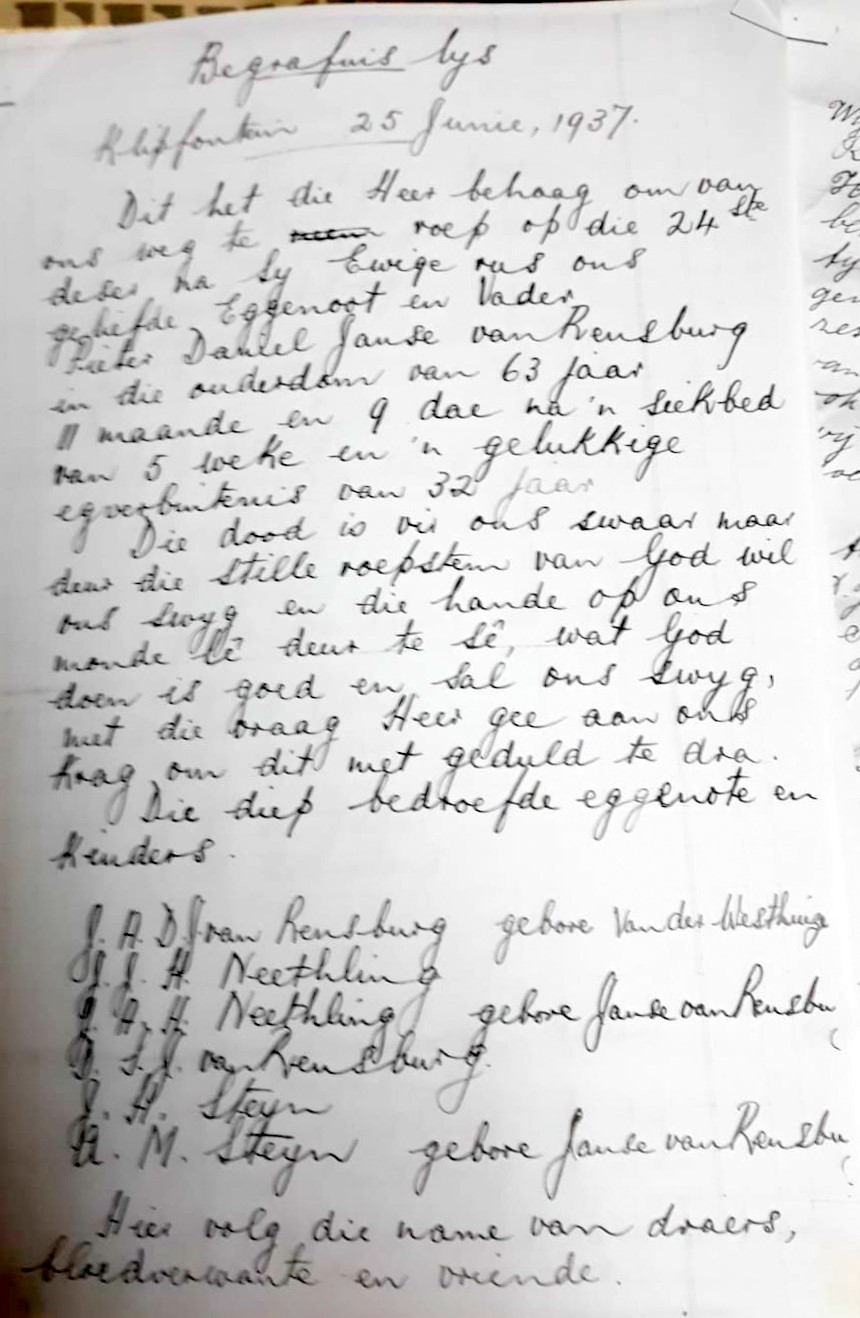 Begrafnis lys
Klipfontein 25 Junie, 1937.
Dit het die Heer behaag om van
ons weg te roep op die 24ste
deser na Sy Ewige rus ons
geliefde Eggenoot en Vader
Pieter Daniel Janse van Rensburg
in die ouderdom van 63 jaar
11 maande en 9 dae na 'n siekbed
van 5 weke en 'n gelukkige
egverbintenis van 32 jaar
Die dood is vir ons swaar maar
deur die stille roepstem van God wil
ons swyg en die hande op ons
monde lê deur te sê, wat God
doen is goed en sal ons swyg,
met die vraag Heer gee aan ons
krag om dit met geduld te dra.
Die diep bedroefde eggenote en
kinders.
J. A. D. J. van Rensburg gebore Van der Westhuize
J. J. H. Neethling
A. H. Neethling gebore Janse van Rensbu
S. J. van Rensburg.
J. H. Steyn
A. M. Steyn gebore Janse van Rensbu
Hier volg die name van draers,
bloedverwante en vriende.